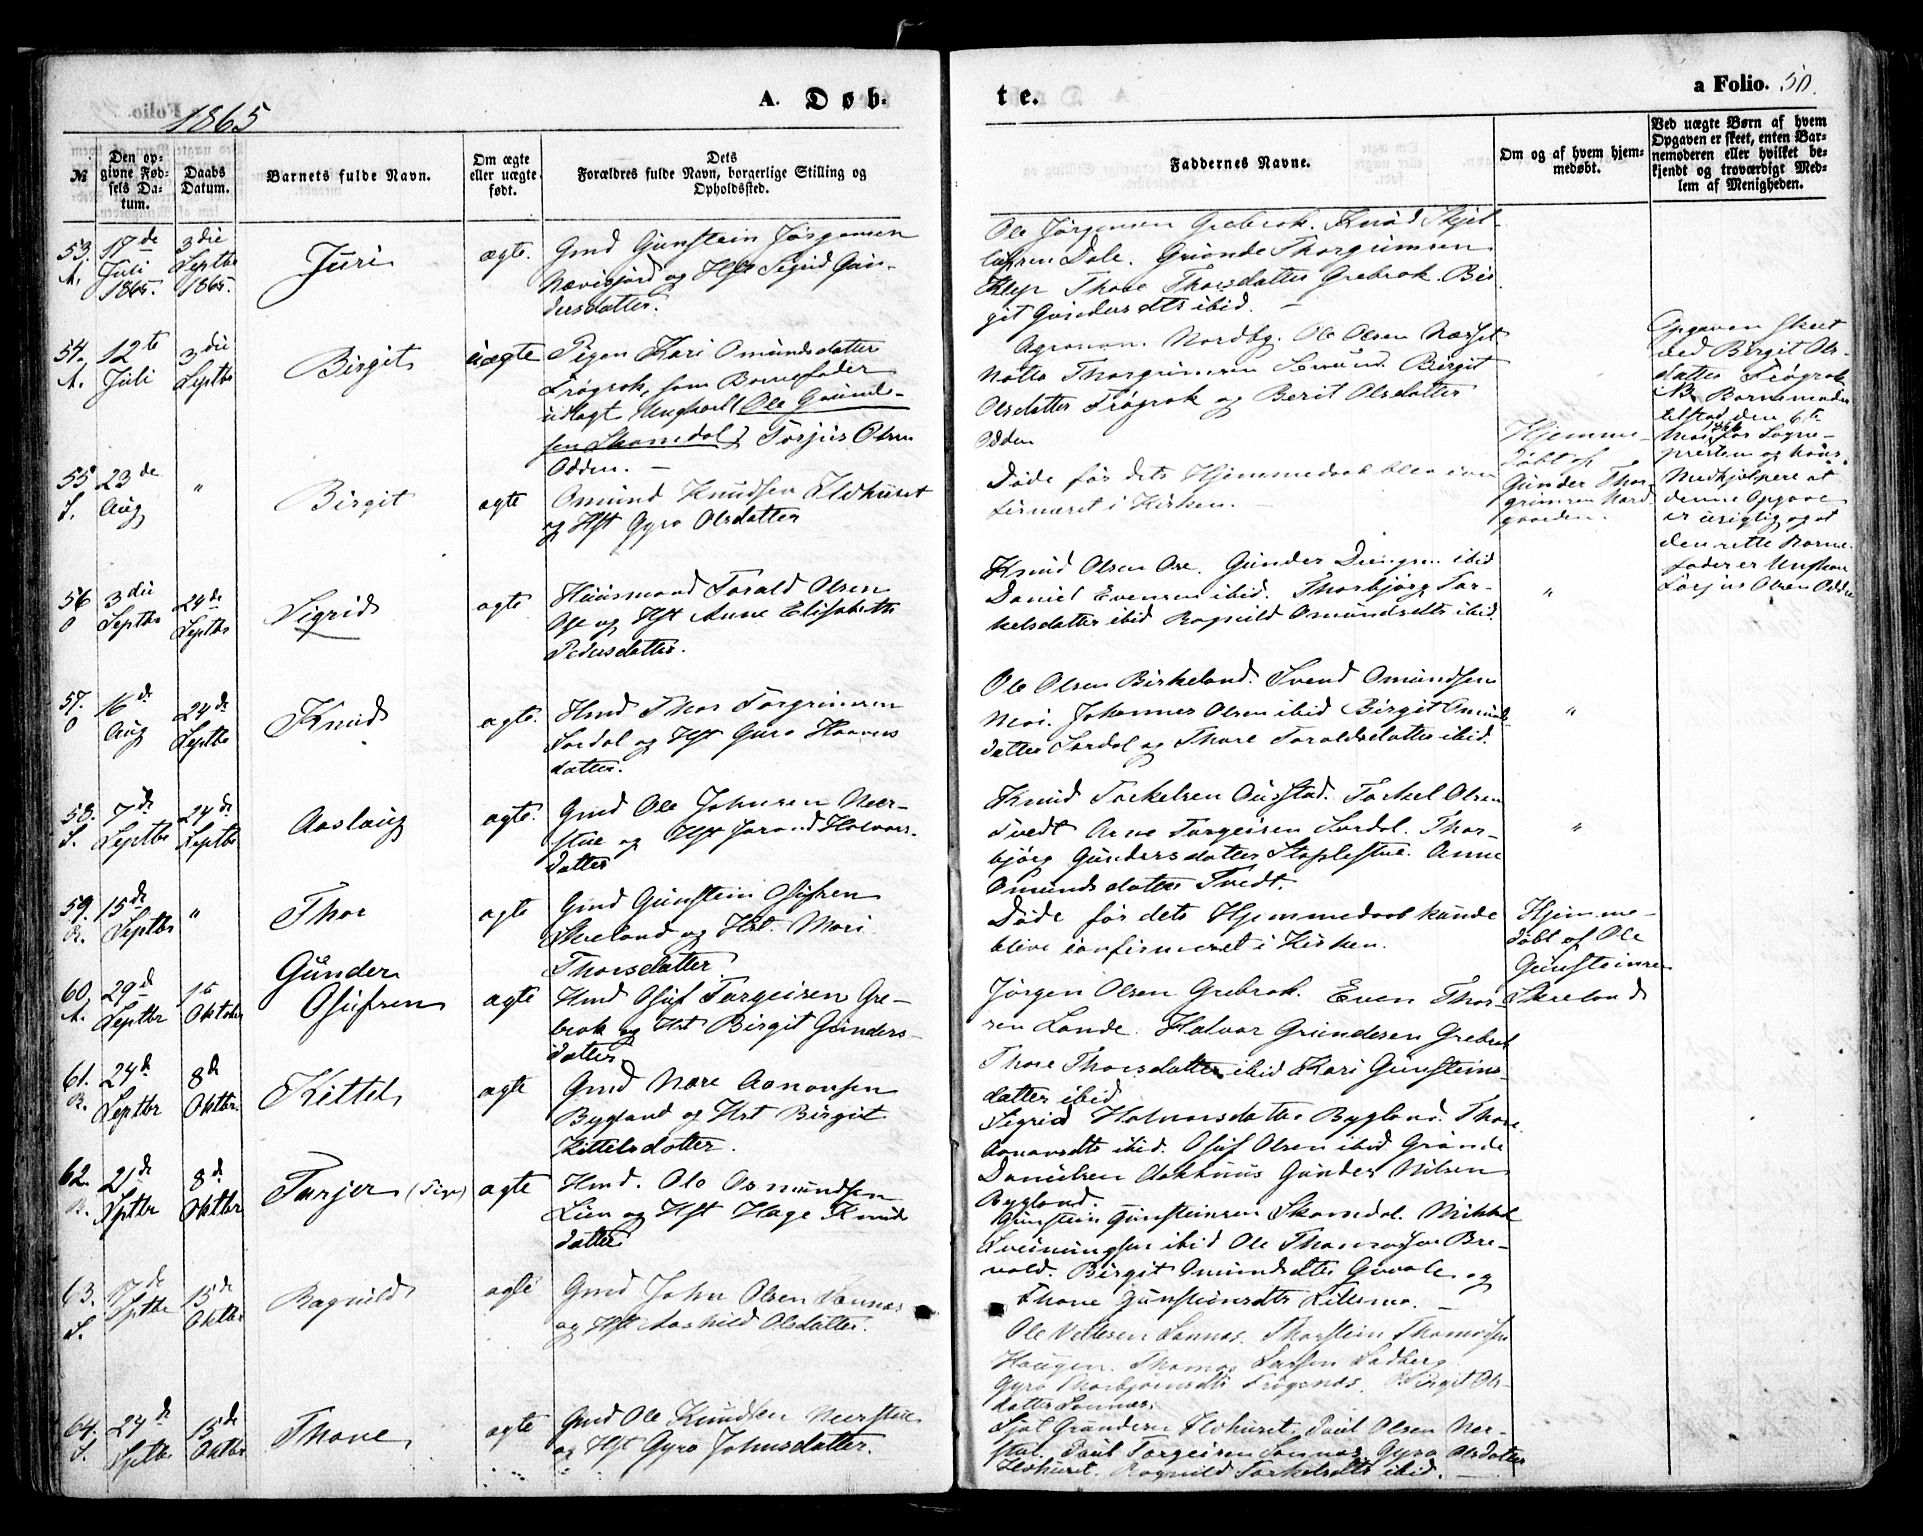 1865
A. Døb-
te.
a Folio. 50.
№
Den op-
givne Fød-
sels Da-
tum.
Daabs
Datum.
Barnets fulde Navn.
Om ægte
eller uægte
født.
Dets
Forældres fulde Navn, borgerlige Stilling og
Opholdssted.
Faddernes Navne.
Om og af hvem hjem-
medøbt.
Ved uægte Børn af hvem
Opgaven er skeet, enten Bar-
nemoderen eller hvilket be-
kjendt og troværdigt Med-
lem af Menigheden.
53.
A.
17de
Juli
1865.
3die
Septbr
1865.
Juri
ægte.
Gmd Gunstein Jørgensen
og Hst Sigrid Gun-
dersdatter.
Ole Jørgensen Grebrok. Knud
Dole. Grunde Thorgrimsen
Thone Thorsdatter Grebrok. Bir-
git Gundersdtr ibid.
54.
A.
12te
Juli
3die
Septbr
Birgit
uægte
Pigen Kari Omundsdatter
Frøgrok, som Barnefader
udlagt Ungkarl Ole Gund-
sen Skomedal, Torjus Olsen
Odden.
Agronom Nordby. Ole Olsen
Thorgrimsen Birgit
Olsdatter Frøgrok og Berit Olsdatter
Odden
Opgaven skeet
ved Birgit Ols-
datter Frøgrok
NB Barnemoder
tilstod den 6te
for Sogne-
presten og hans
Medhjelpere at
denne Opgave
er urigtig og at
den rette Barne-
fader er Ungkarl
Torjus Olsen Odden
55
S.
23de
Aug
"
Birgit
ægte
Omund Knudsen Flohuset
og Hst Gyro Olsdatter
Døde før dets Hjemmedaab blev con
firmeret i Kirken.
Hjemme-
døbt af
Gunder Thor-
grimsen Nord
gaarden.
56
O
3die
Septbr
24de
Septbr
Sigrid
ægte
Huusmand Torald Olsen
Ose og Hst Anne Elisabeth
Pedersdatter.
Knud Olsen Ose. Gunder ibid
Daniel Evensen ibid. Thorbjørg Tor-
kelsdatter ibid Ragnild Omundsdtr ibid.
"
57.
O
16de
Aug
24de
Septbr
Knud
ægte.
Hmd Thor Torgrimsen
Sordal og Hst Guro Haavors
datter.
Ole Olsen Birkeland. Svend Omundsen
Moi. Johannes Olsen ibid Birgit Omunds
datter Sordal og Thore Toraldsdatter ibid.
"
58.
S.
7de
Septbr
24de
Septbr
Aaslaug
ægte.
Gmd Ole Johnsen Neer-
stue og Hst Jorand Halvors-
datter
Knud Torkelsen Ousstad. Torkel Olsen
Tvedt Arne Torgeisen Sordal. Thor-
bjørg Gundersdatter Staplestue. Anne
Omundsdatter Tvedt.
"
59.
B.
15de
Septbr
"
Thor
ægte
Gmd Gunstein Osufsen
Skreland og Hst. Mari
Thorsdatter
Døde før dets Hjemmedaab kunde
blive confirmeret i Kirken.
Hjemme-
døbt af Ole
Gunsteinsen
Skreland
60.
A.
29de
Septbr
1te
Oktober
Gunder
Osufsen
ægte
Hmd Osuf Torgeisen Gre-
brok og Hst Birgit Gunders-
datter
Jørgen Olsen Grebrok. Even Thor-
sen Lande. Halvor Grundesen Grebrok
Thore Thorsdatter ibid Kari Gunsteins-
datter ibid
61.
B.
24de
Septbr
8de
Oktbr.
Kittel
ægte
Gmd Nare Aanonsen
Bygland og Hst Birgit
Kittelsdatter.
Sigrid Halvorsdatter Bygland. Thore
Aanonsdtr ibid. Osuf Olsen ibid Grunde
Danielsen Aakhuus Gunder Nilsen
Bygland.
62.
B.
21de
Septbr
8de
Oktbr
Turjer (Pige)
ægte
Hmd. Ole Osmundsen
Lien og Hst Hage Knuds
datter
Gunstein Gunsteinsen Skomedal. Mikkel
Sveinungsen ibid Ole Thomassen Bre-
vold. Birgit Omundsdtr og
Thone Gunsteinsdtr Litlemo.
63.
S.
7de
Septbr
15de
Oktbr
Ragnild
ægte
Gmd John Olsen Sannes
og Hst Aashild Olsdatter.
Ole Sannes. Thorstein Thomassen
Haugen. Thomas
Gyro Thorbjørnsdtr Frøysnes. Birgit Ols-
datter Sannes.
64.
S.
24de
Septbr
15de
Oktbr
Thone
ægte
Gmd Ole Knudsen Neerstue
og Hst Gyro Johnsdatter.
Grundesen Flohuset. Paul Olsen Ner-
stue. Paul Torgeisen Sannes Gyro Olsdatter
Flohuset. Ragnild Torkelsdtr ibid.